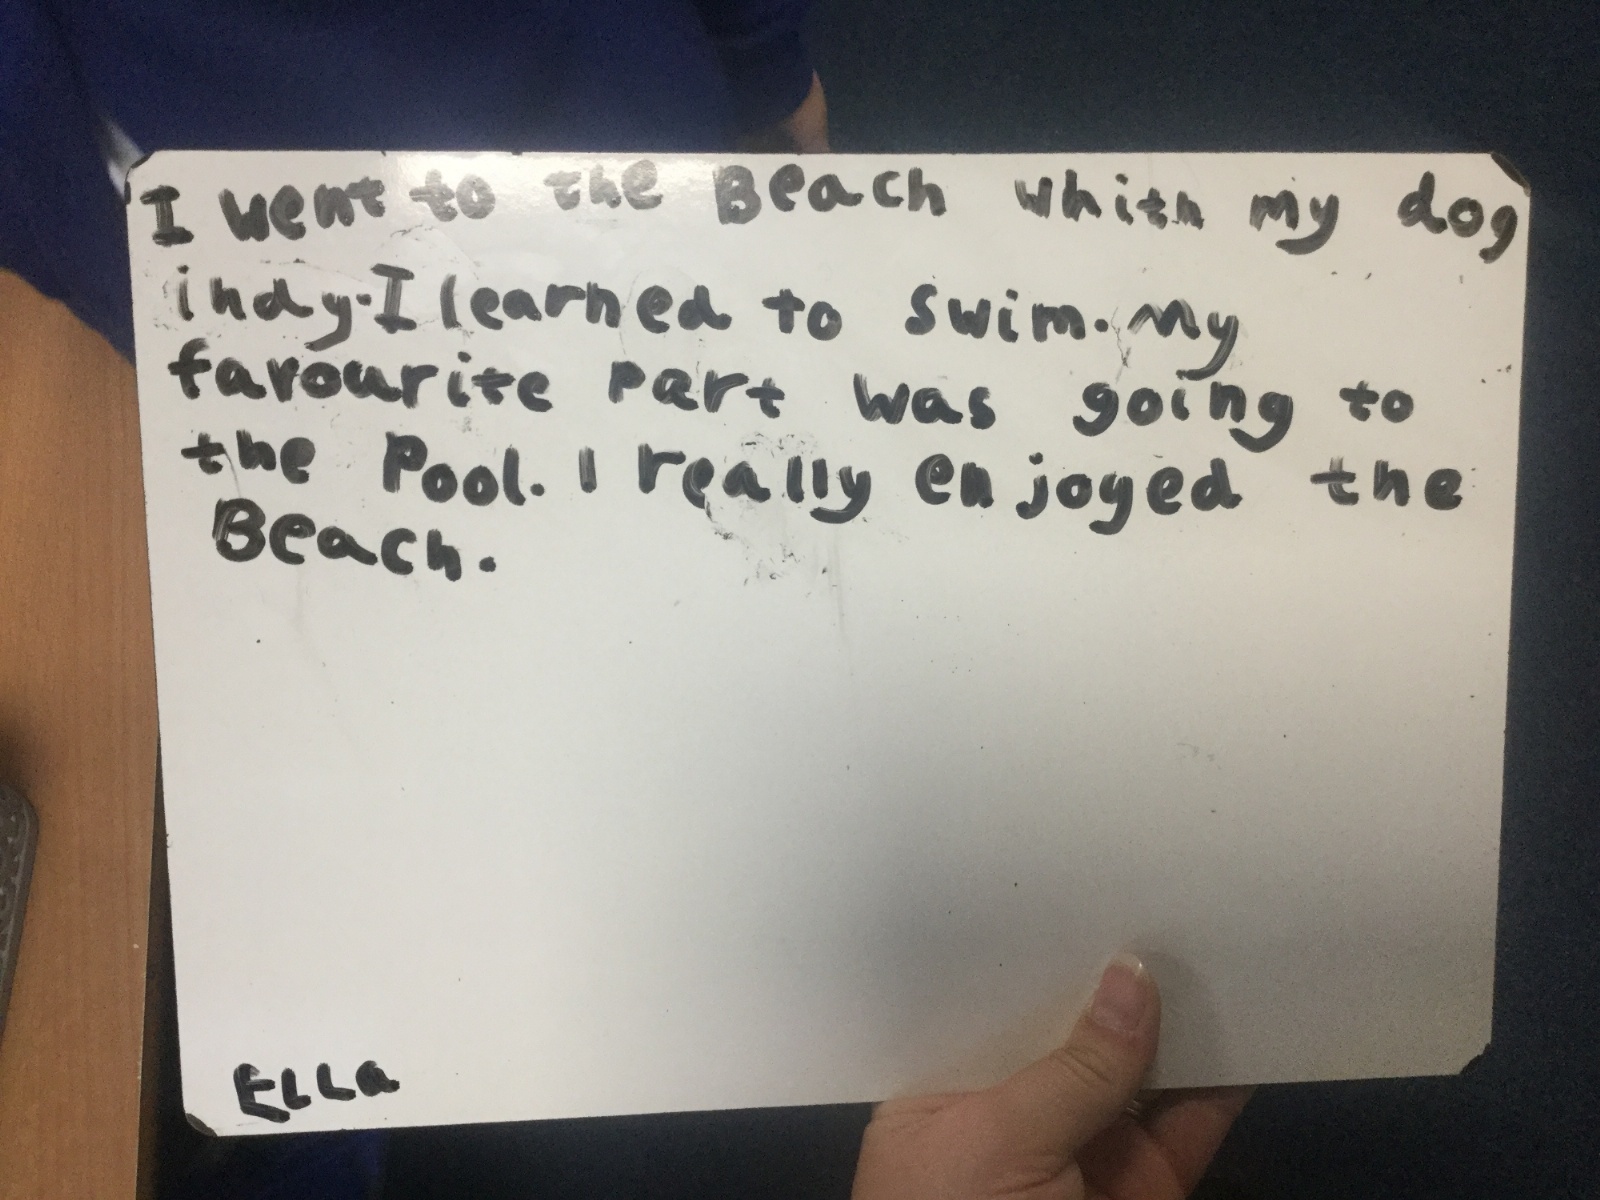 I went to the Beach whith my dog
indy. I learned to swim. My
favourite part was going to
the Pool. I really enjoyed the
Beach.
ELLa